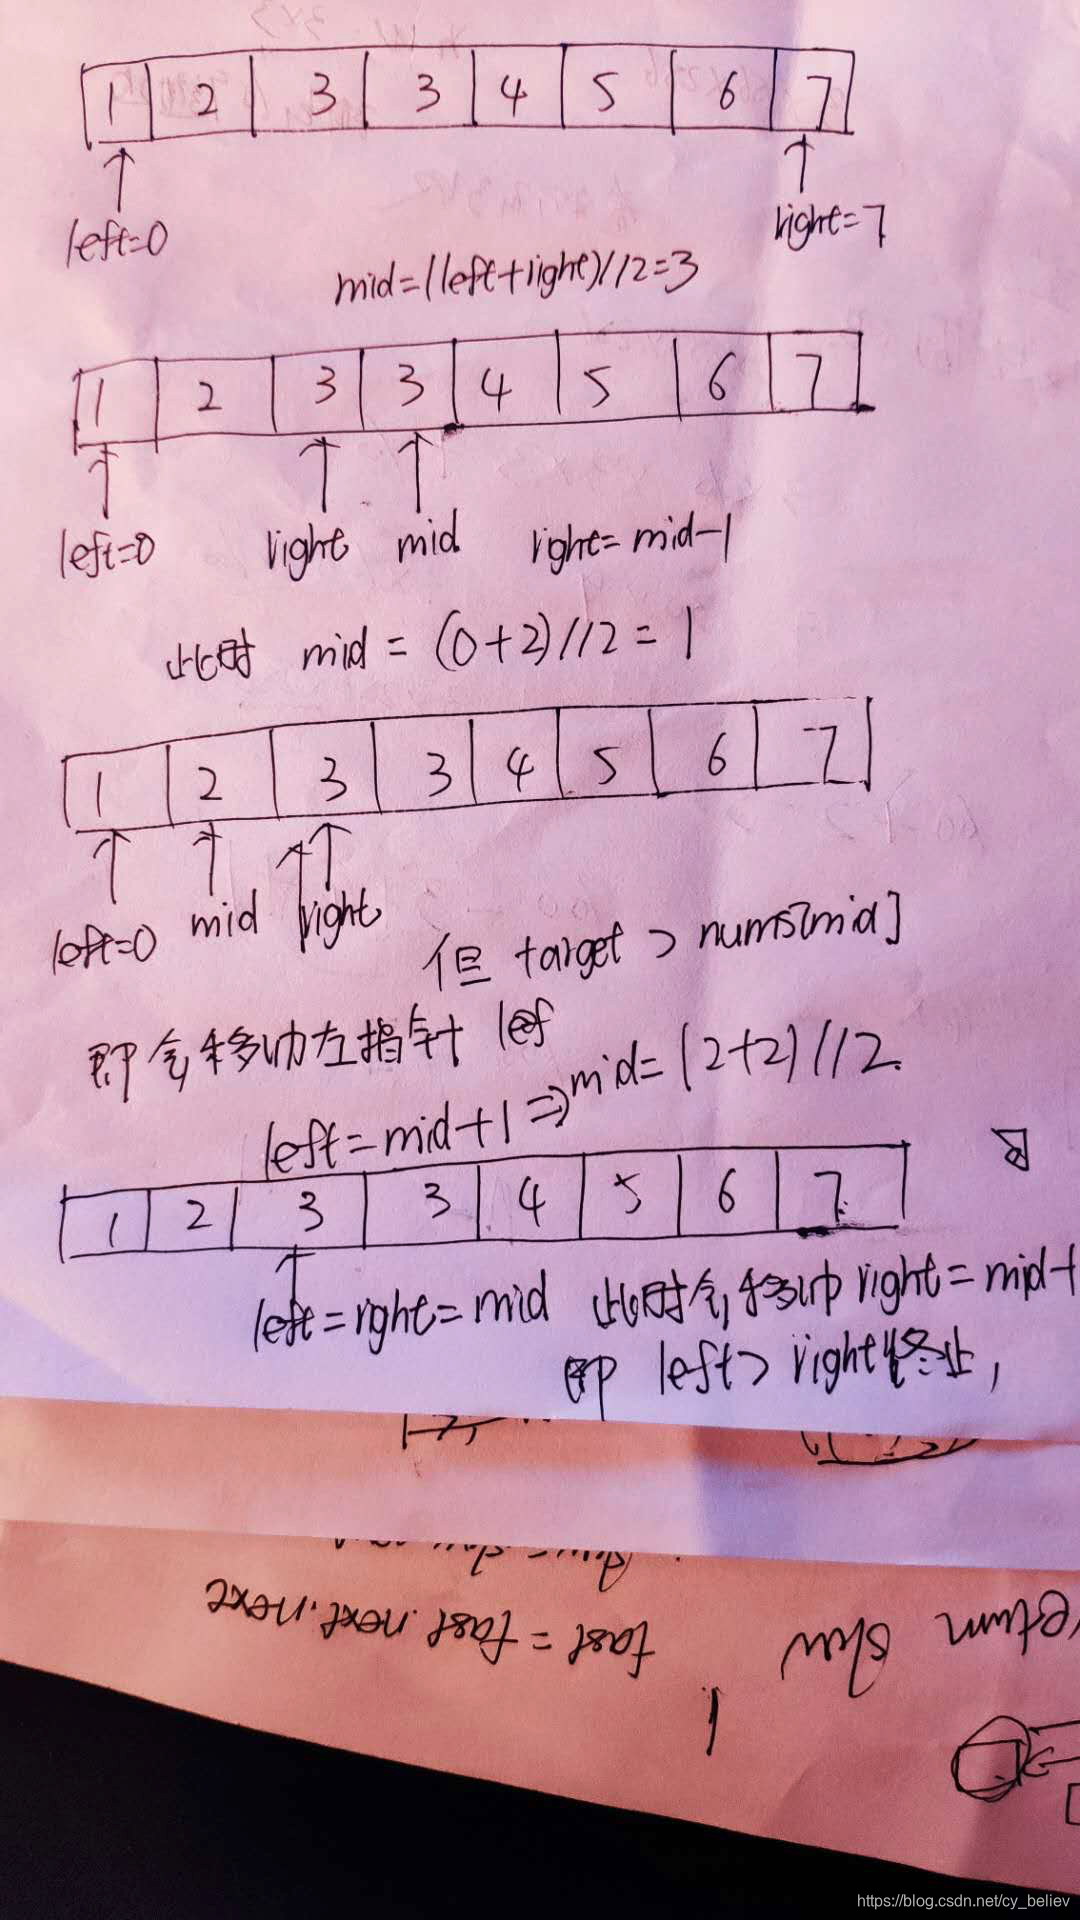 1 2 3 3 4 5 6 7
left=0 right=7
mid=(left+right)//2=3
1 2 3 3 4 5 6 7
left=0 right mid right=mid-1
此时 mid = (0+2)//2 = 1
1 2 3 3 4 5 6 7
left=0 mid right
但 target > nums[mid]
即会移动左指针 lef
left=mid+1 => mid=(2+2)//2
1 2 3 3 4 5 6 7
left=right=mid 此时会移动 right=mid-1
即 left > right 终止,
fast = fast.next.next
https://blog.csdn.net/cy_believ